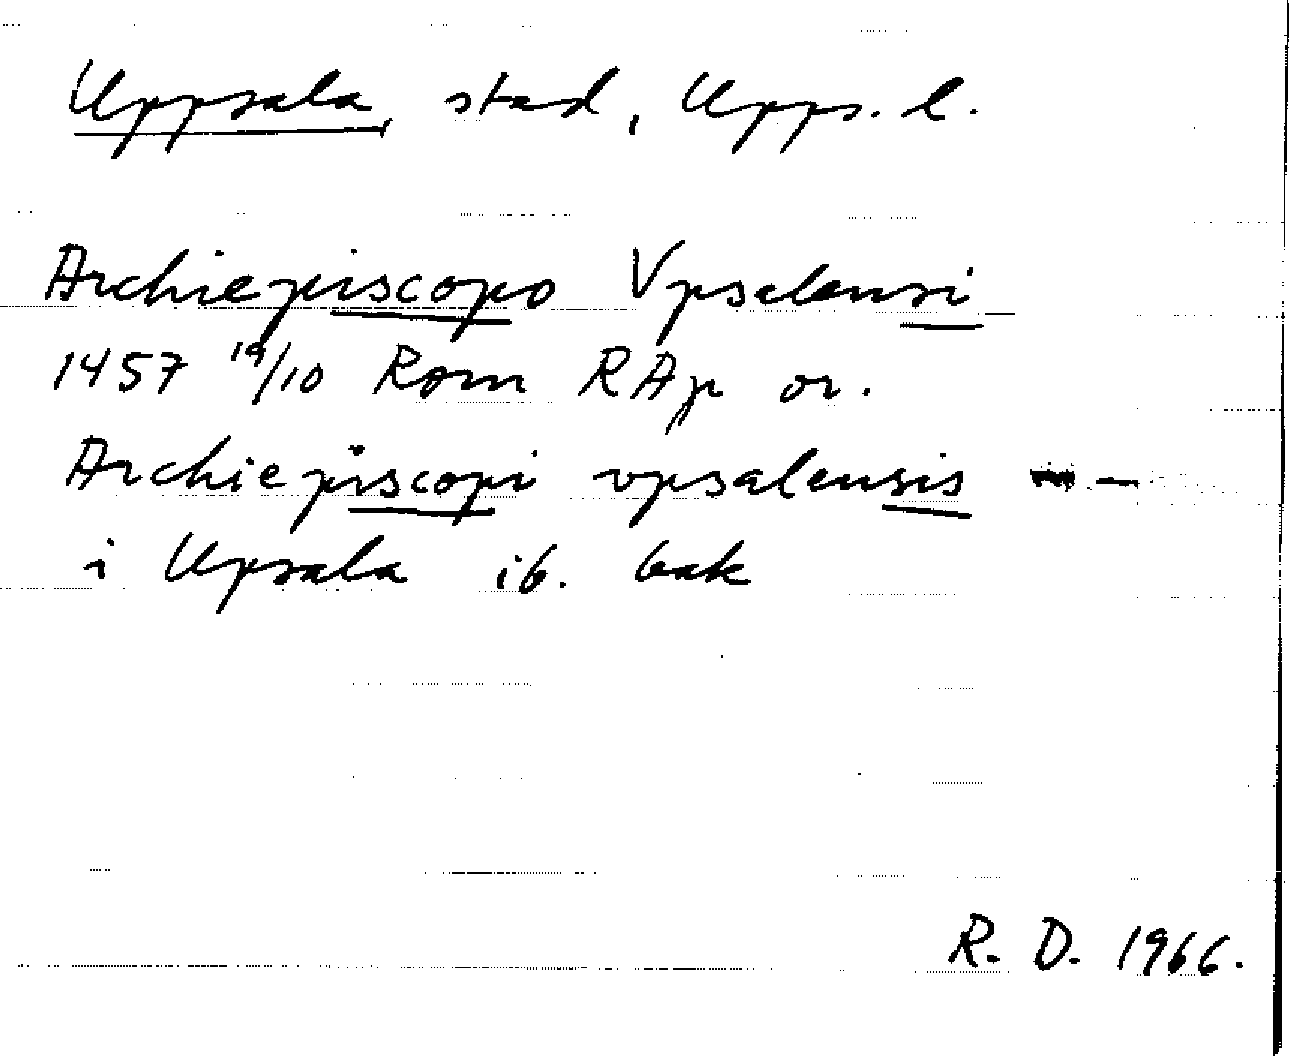 Uppsala, stad, Upps. l.
Archiepiscopo Vpsalensi
1457 19/10 Rom RAp or.
Archiepiscopi vpsalensis —
i Upsala ib. bak
R. D. 1966.